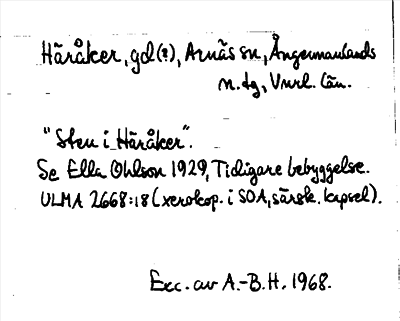 Häråker, gd(?), Arnäs sn, Ångermanlands
n. tg, Vnrl. län.
"Sten i Häråker".
Se Ella Ohlson 1929, Tidigare bebyggelse.
ULMA 2668:18 (xerokop. i SOA, särsk. kapsel).
Exc. av A.-B. H. 1968.